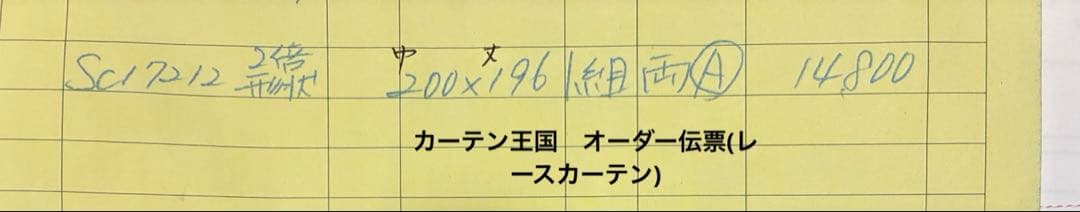 SC17212 2倍形状 巾200×丈196 1組 両Ⓐ 14,800
カーテン王国　オーダー伝票(レ
ースカーテン)